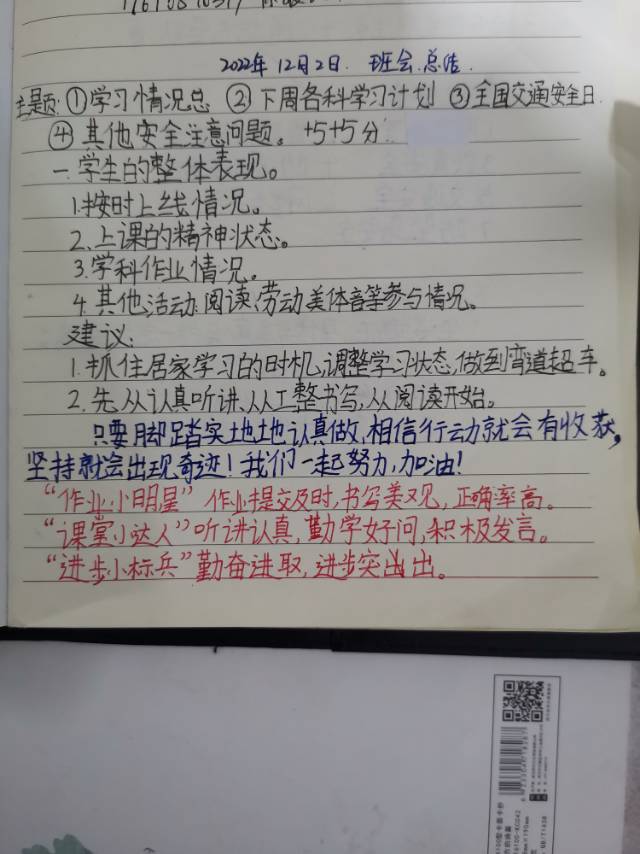 2022年12月2日. 班会.总结.
主题: ①学习情况总 ②下周各科学习计划 ③全国交通安全日.
④其他安全注意问题。+5+5分
一.学生的整体表现。
1.按时上线情况。
2.上课的精神状态。
3.学科作业情况。
4.其他活动:阅读,劳动美体音等参与情况。
建议:
1.抓住居家学习的时机,调整学习状态,做到弯道超车。
2.先从认真听讲,从工整书写,从阅读开始。
只要脚踏实地地认真做,相信行动就会有收获,
坚持就会出现奇迹!我们一起努力,加油!
“作业小明星”作业提交及时,书写美观,正确率高。
“课堂小达人”听讲认真,勤学好问,积极发言。
“进步小标兵”勤奋进取,进步突出出。